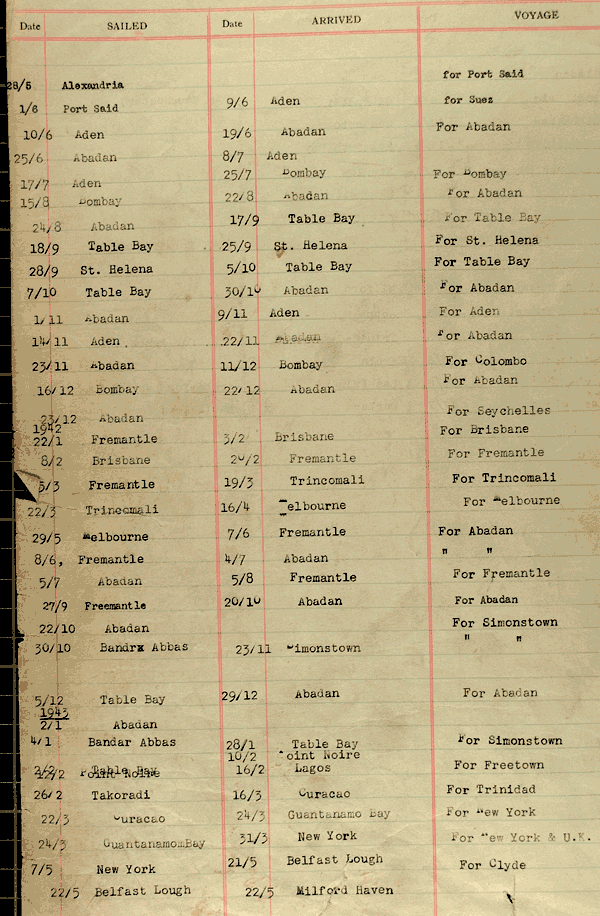 Date SAILED Date ARRIVED VOYAGE
28/5 Alexandria for Port Said
1/6 Port Said 9/6 Aden for Suez
10/6 Aden 19/6 Abadan For Abadan
25/6 Abadan 8/7 Aden
17/7 Aden 25/7 Bombay For Bombay
15/8 Bombay 22/8 Abadan For Abadan
24/8 Abadan 17/9 Table Bay For Table Bay
18/9 Table Bay 25/9 St. Helena For St. Helena
28/9 St. Helena 5/10 Table Bay For Table Bay
7/10 Table Bay 30/10 Abadan For Abadan
1/11 Abadan 9/11 Aden For Aden
14/11 Aden 22/11 Abadan For Abadan
23/11 Abadan 11/12 Bombay For Colombo
16/12 Bombay 22/12 Abadan For Abadan
23/12 Abadan For Seychelles
1942
22/1 Fremantle 3/2 Brisbane For Brisbane
8/2 Brisbane 20/2 Fremantle For Fremantle
5/3 Fremantle 19/3 Trincomali For Trincomali
22/3 Trincomali 16/4 Melbourne For Melbourne
29/5 Melbourne 7/6 Fremantle For Abadan
8/6, Fremantle 4/7 Abadan " "
5/7 Abadan 5/8 Fremantle For Fremantle
27/9 Freemantle 20/10 Abadan For Abadan
22/10 Abadan For Simonstown
30/10 Bandrx Abbas 23/11 Simonstown " "
5/12 Table Bay 29/12 Abadan For Abadan
1943
2/1 Abadan
4/1 Bandar Abbas 28/1 Table Bay For Simonstown
10/2 Point Noire
2/2 Table Bay 16/2 Lagos For Freetown
12/2 Point Noire
26/2 Takoradi 16/3 Curacao For Trinidad
22/3 Curacao 24/3 Guantanamo Bay For New York
24/3 Guantanamo.Bay 31/3 New York For New York & U.K.
7/5 New York 21/5 Belfast Lough For Clyde
22/5 Belfast Lough 22/5 Milford Haven